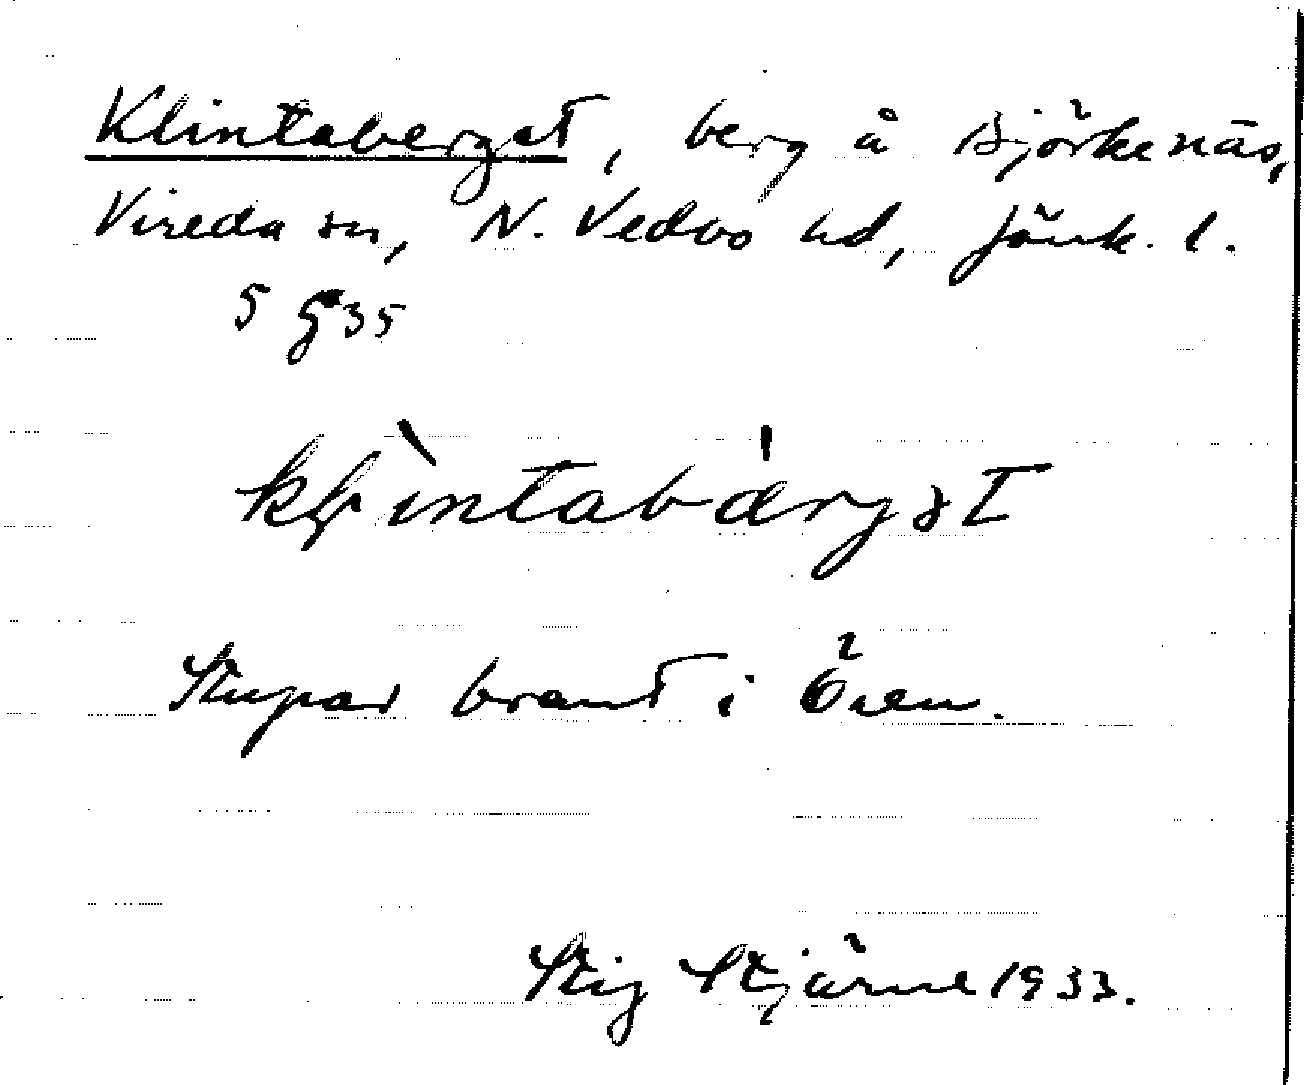 Klintaberget, berg å Björkenäs,
Vireda sn, N. Vedbo hd, Jönk. l.
5 g 35
kḷìntabǽrgət
Stupar brant i Ören.
Stig Stjärne 1933.